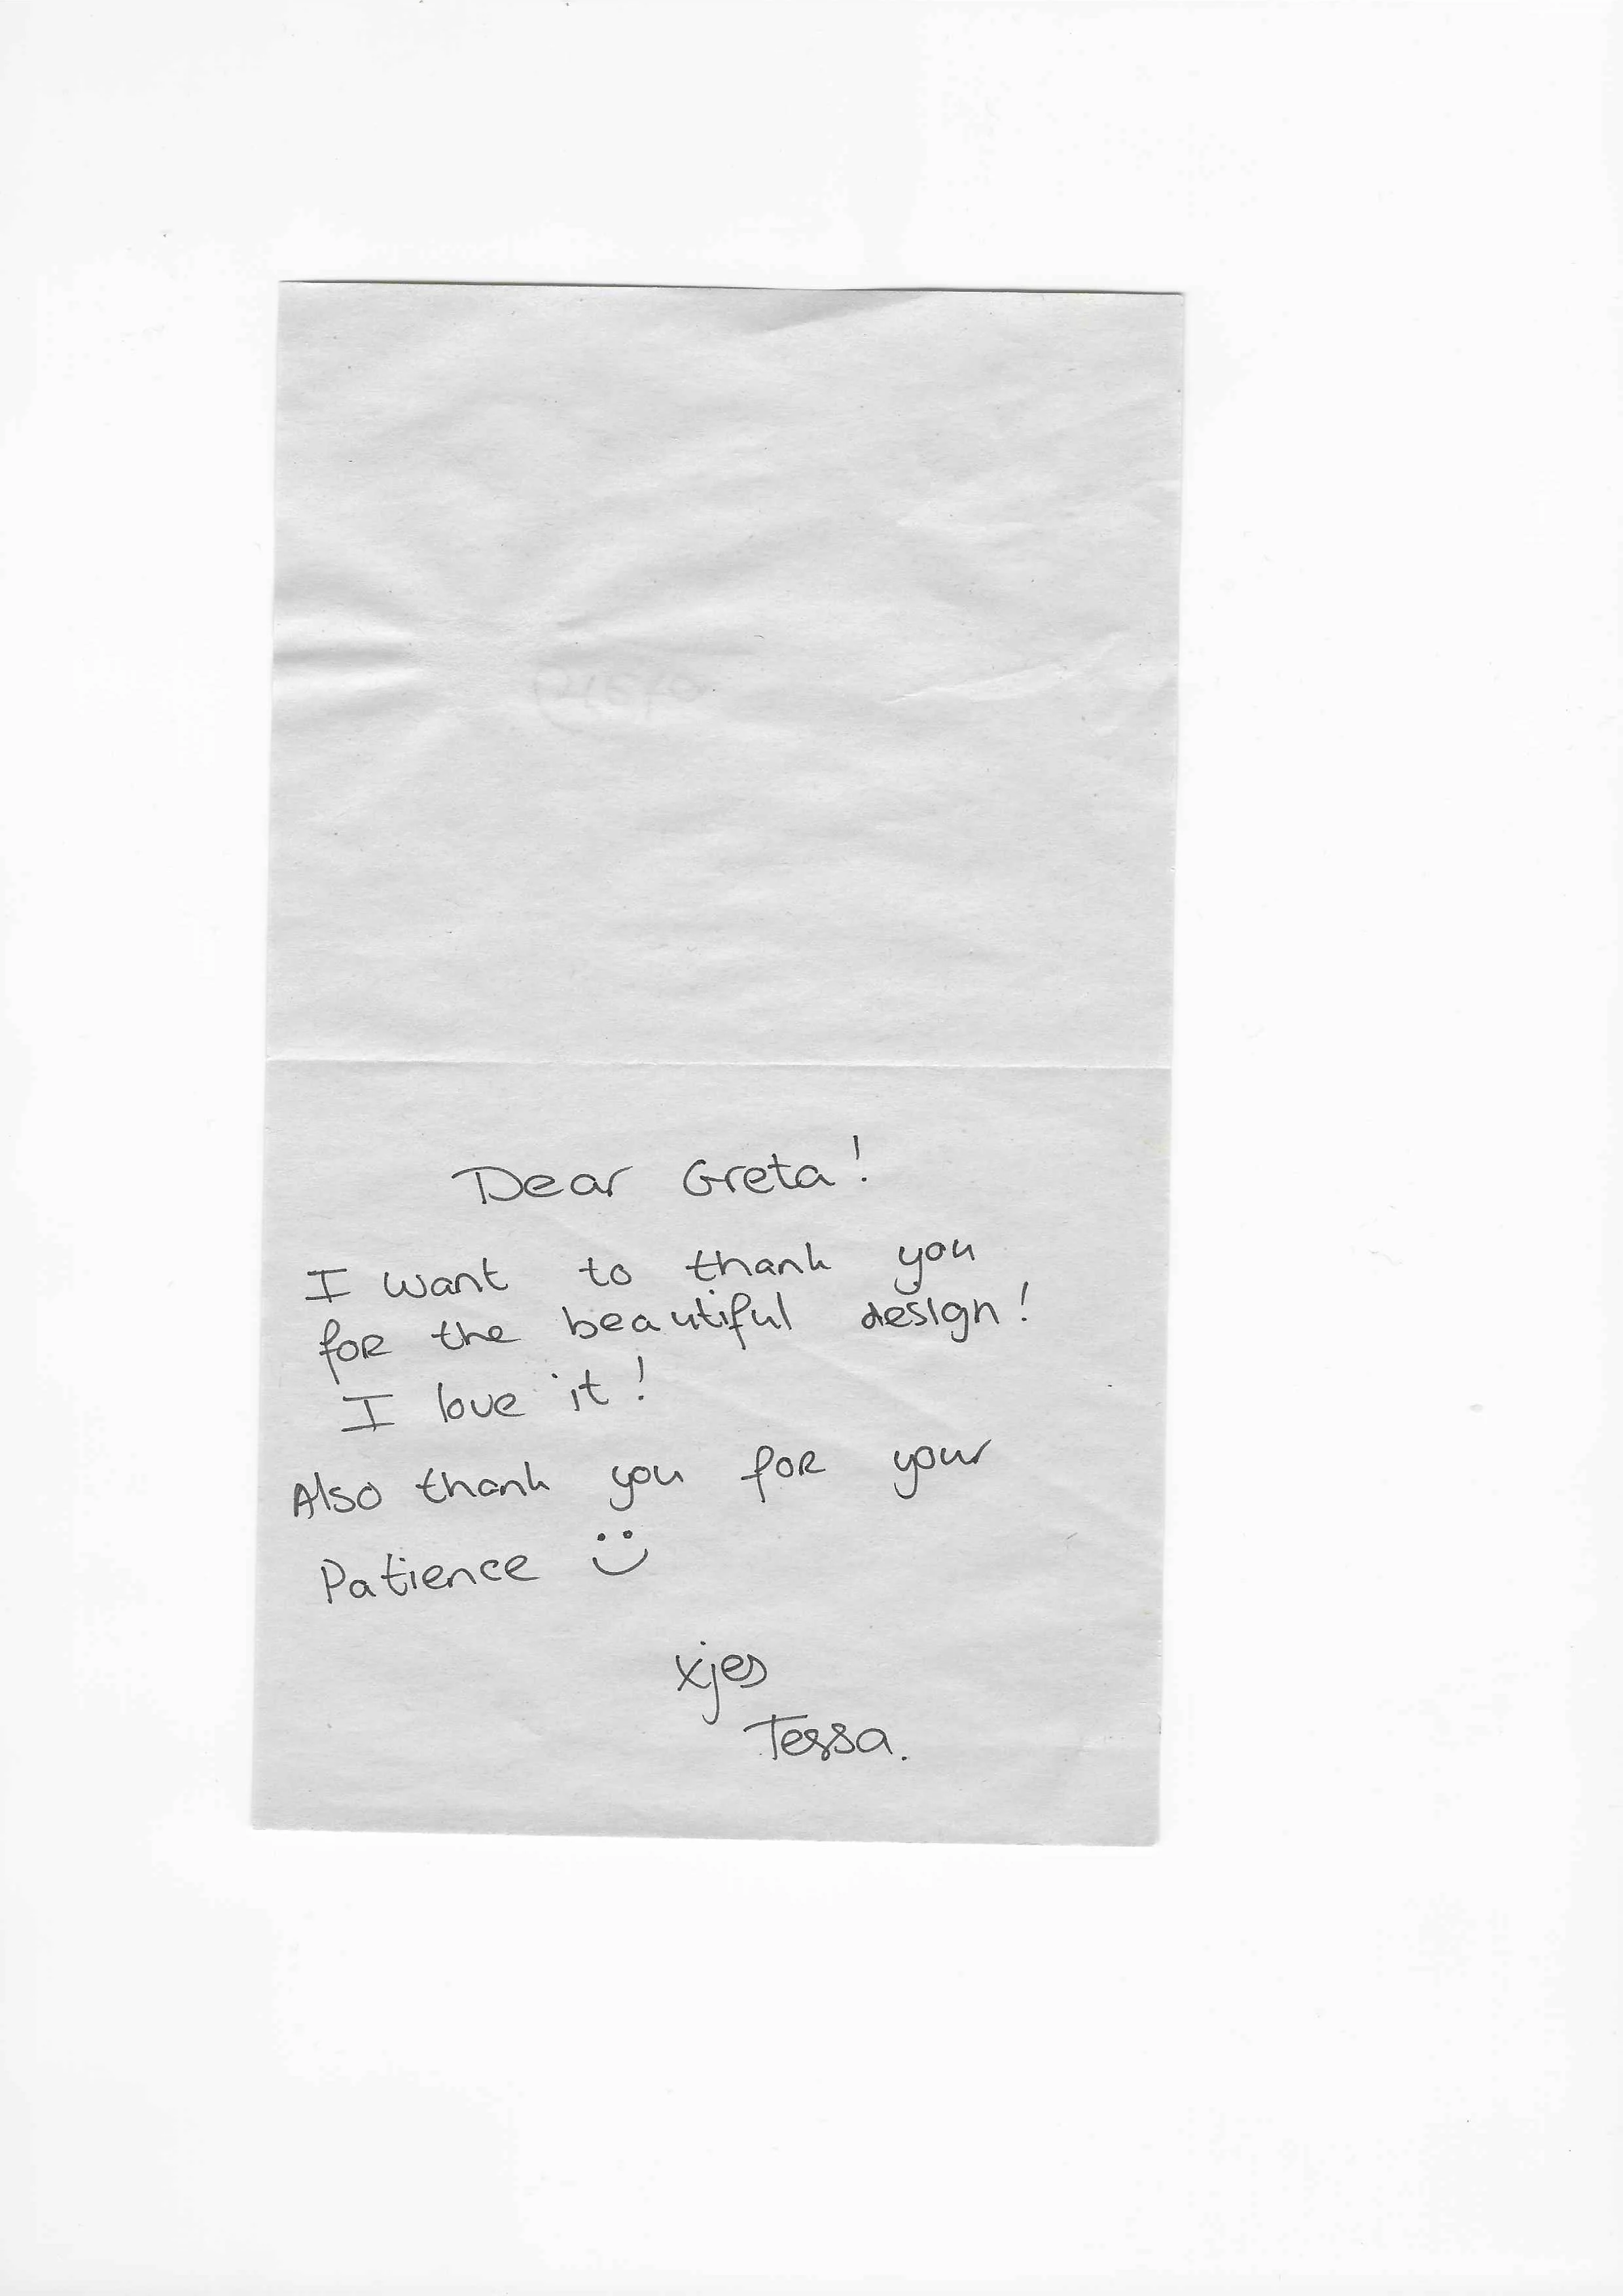 Dear Greta!
I want to thank you
for the beautiful design!
I love it!
Also thank you for your
Patience :)
xjes
Tessa.